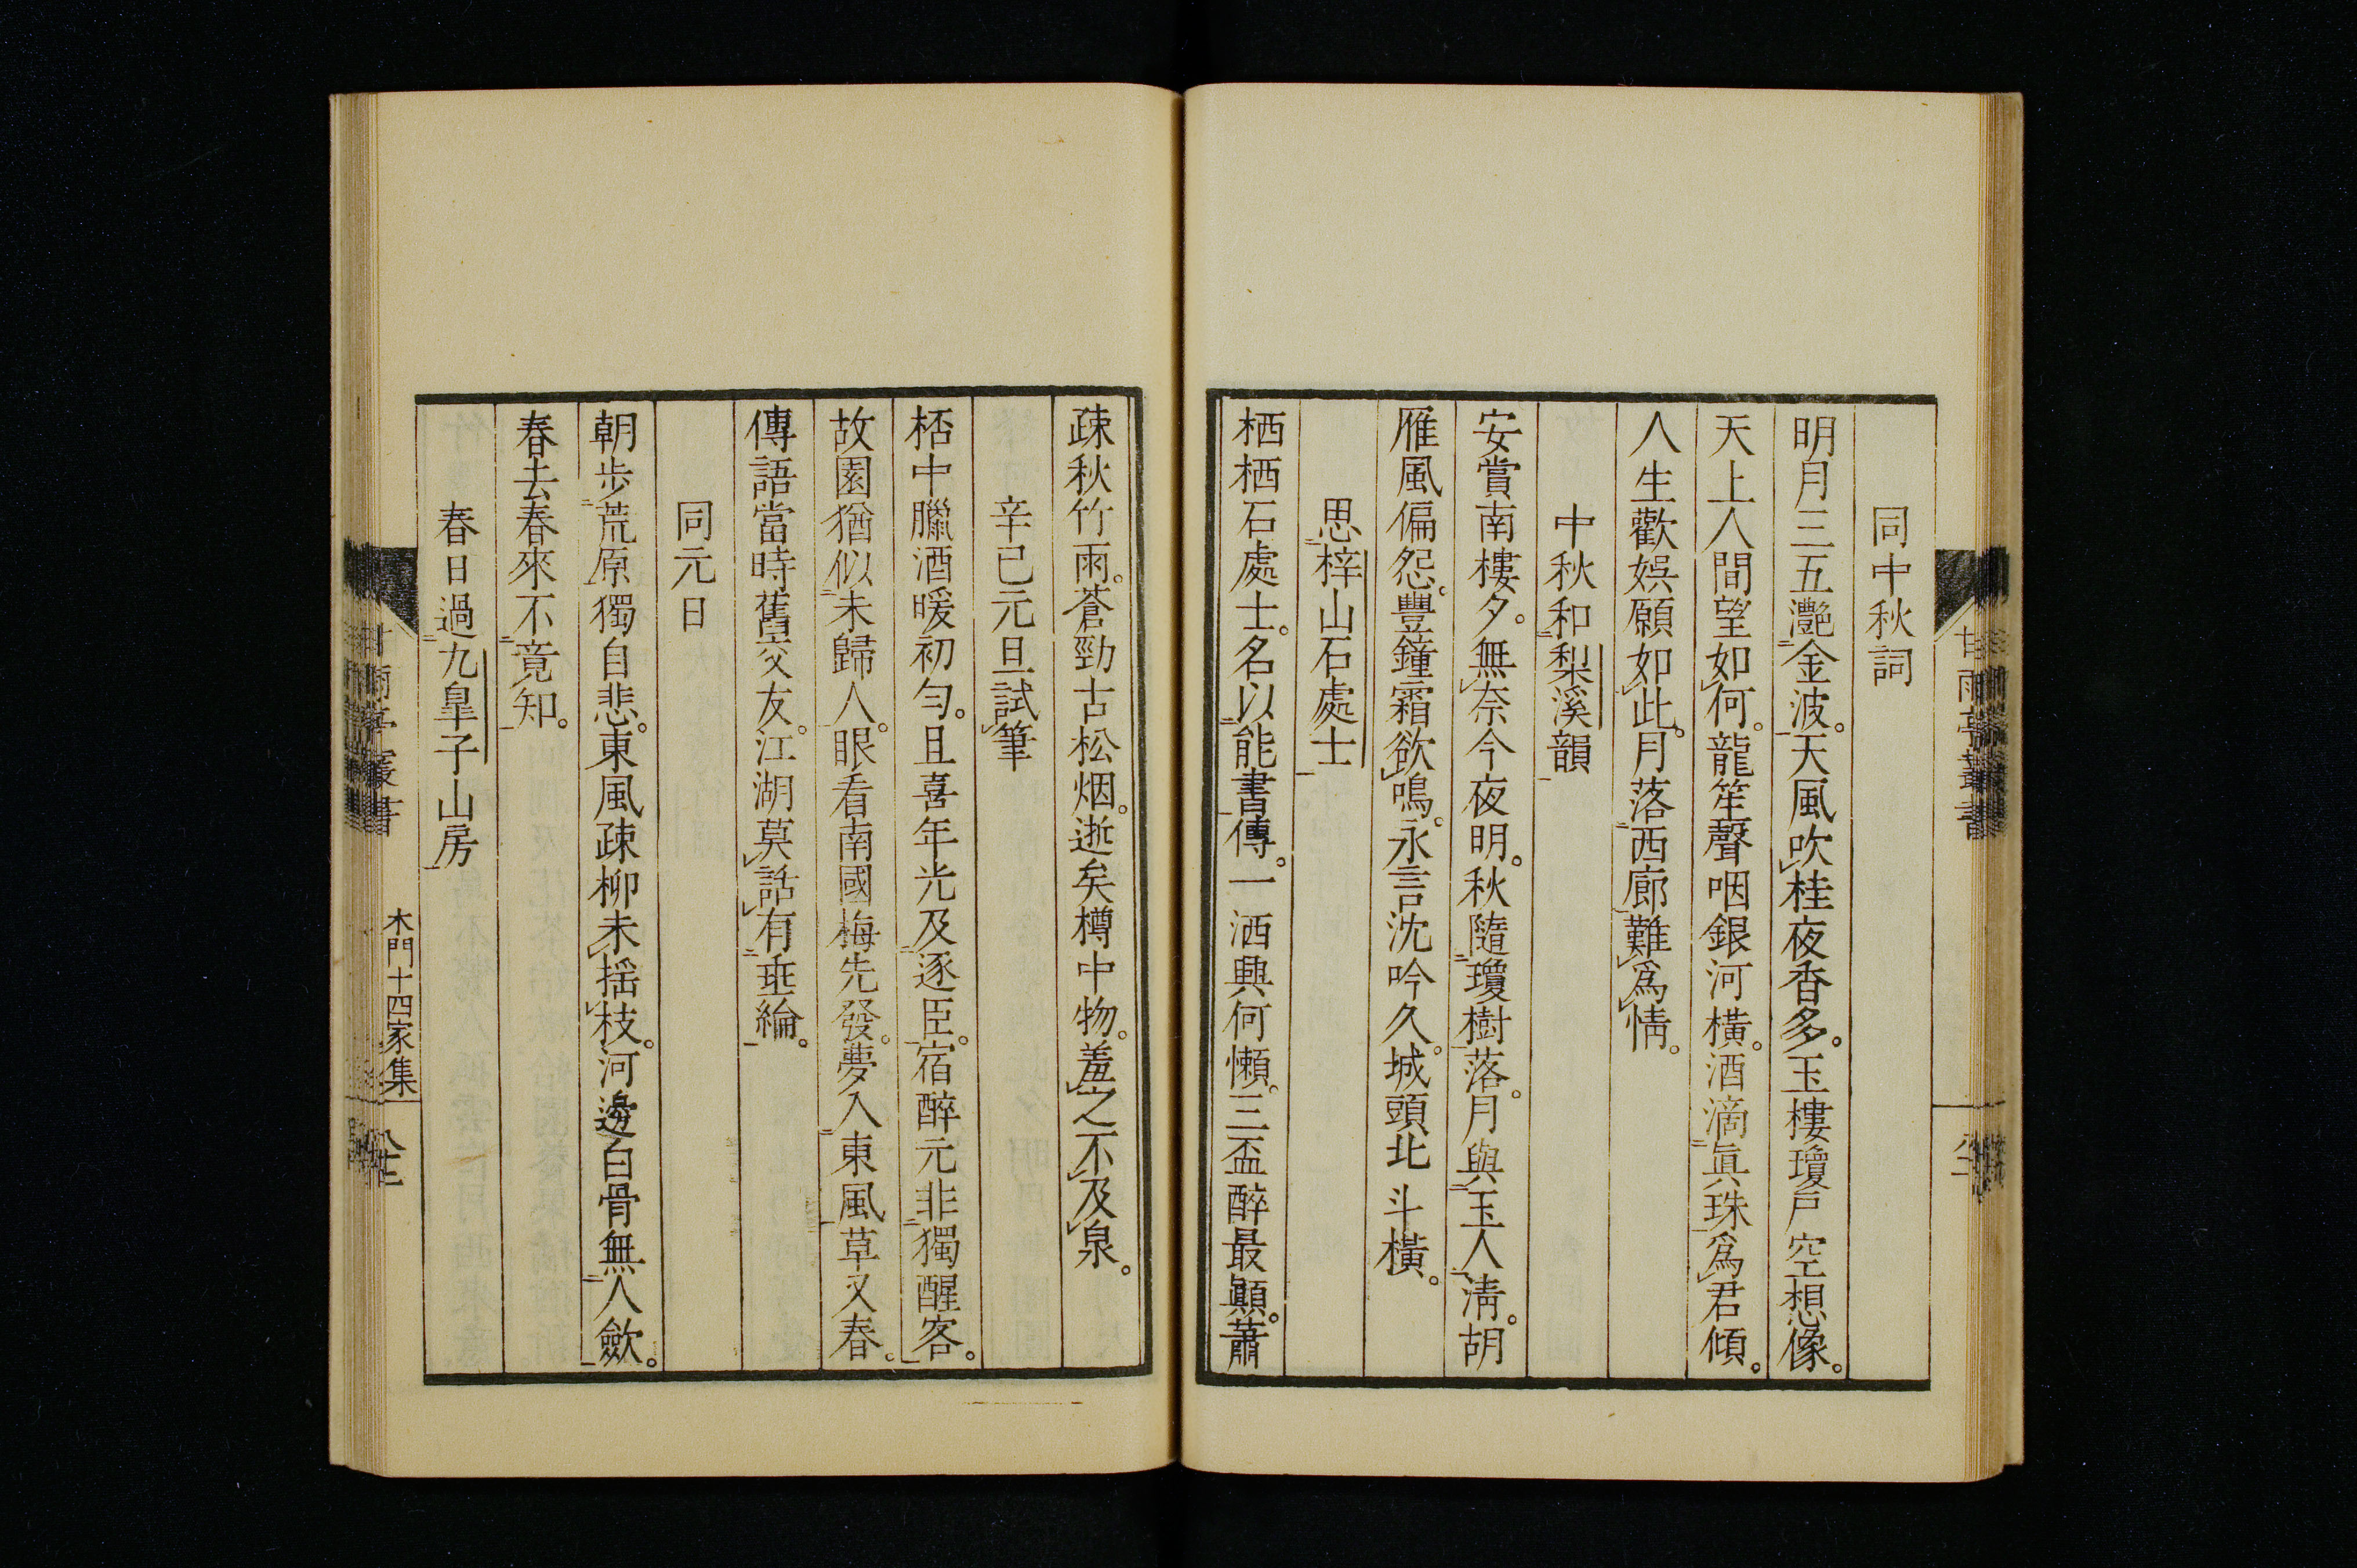 同中秋詞
明月三五灔金波。天風吹桂夜香多。玉樓瓊戶空想像。
天上人間望如何。龍笙聲咽銀河橫。酒滴眞珠爲君傾。
人生歡娯願如此。月落西廊難爲情。
中秋和梨溪韻
安賞南樓夕。無奈今夜明。秋隨瓊樹落。月與玉人淸。胡
雁風偏怨。豐鐘霜欲鳴。永言沈吟久。城頭北斗橫。
思梓山石處士
栖栖石處士。名以能書傳。一洒興何懶。三盃醉最顚。蕭
疎秋竹雨。蒼勁古松烟。逝矣樽中物。羞之不及泉。
辛巳元旦試筆
桮中臘酒暖初勻。且喜年光及逐臣。宿醉元非獨醒客。
故園猶似未歸人。眼看南國梅先發。夢入東風草又春。
傳語當時舊交友。江湖莫話有垂綸。
同元日
朝步荒原獨自悲。東風疎柳未搖枝。河邊白骨無人斂。
春去春來不竟知。
春日過九皐子山房
甘雨亭叢書
木門十四家集